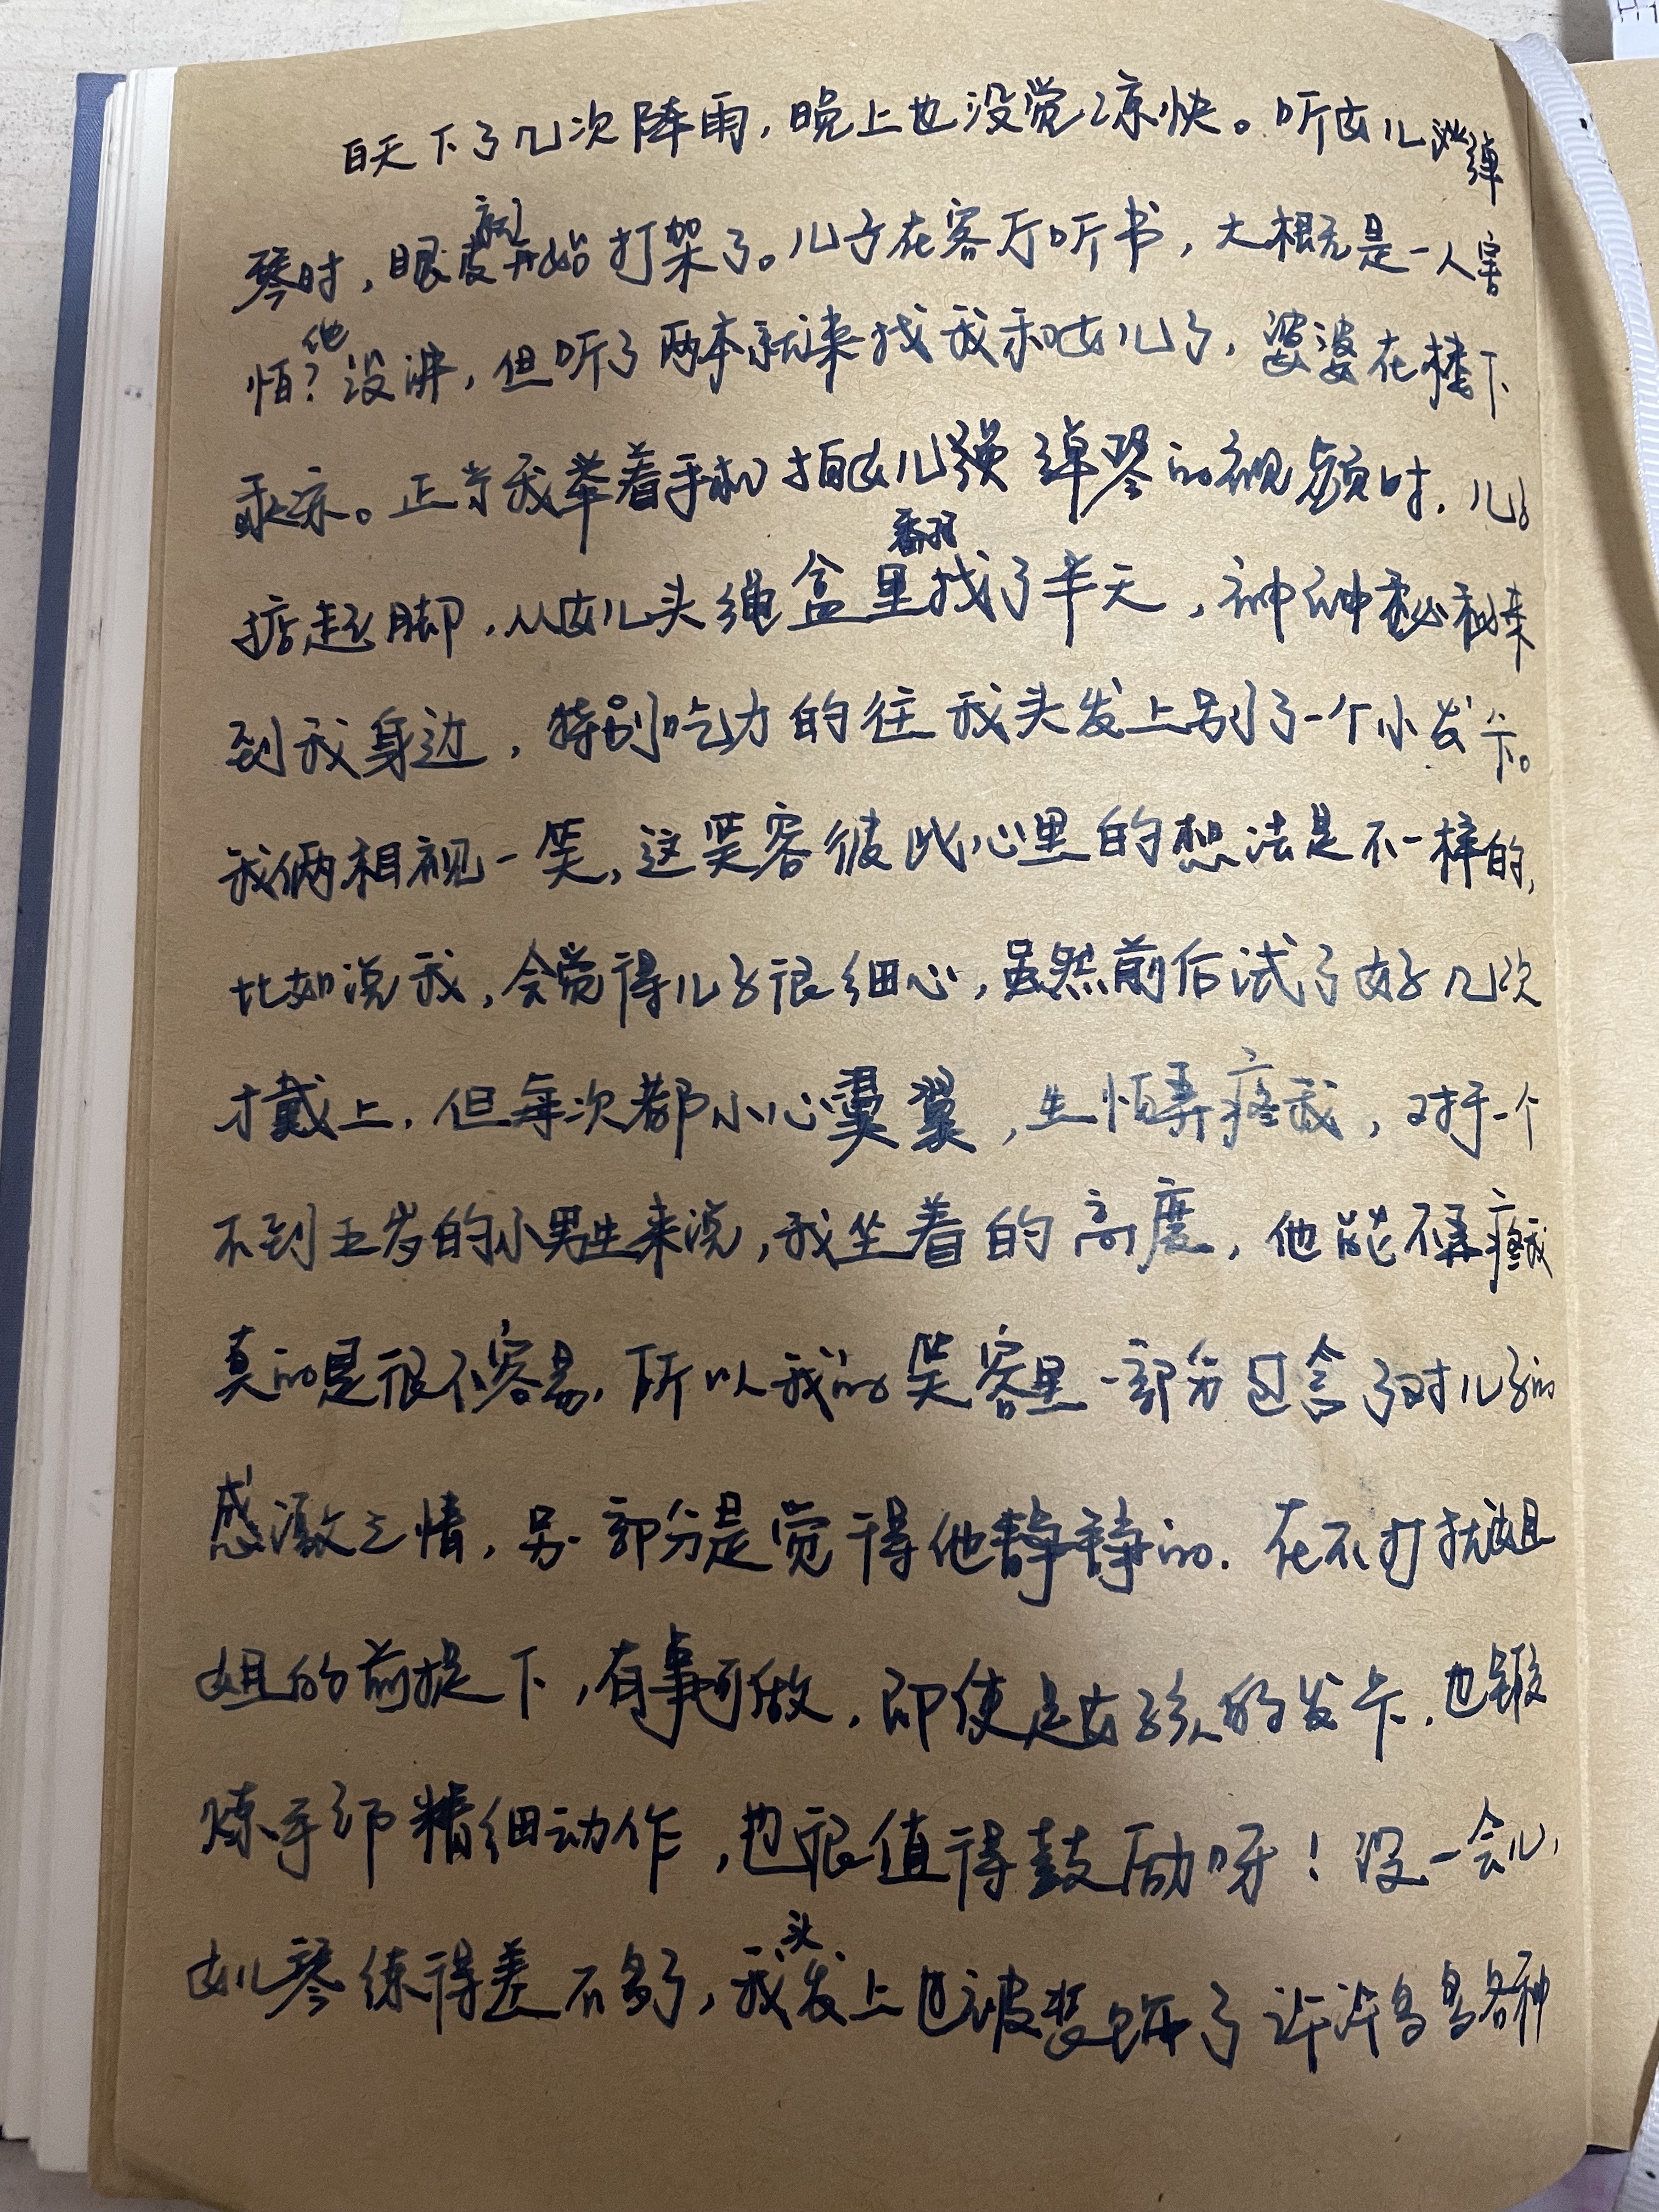 白天下了几次阵雨，晚上也没觉凉快。听女儿弹
琴时，眼皮就开始打架了。儿子在客厅听书，大概是一人害
怕？他没讲，但听了两本就来找我和女儿了，婆婆在楼下
乘凉。正当我举着手机拍女儿弹琴的视频时，儿子
掂起脚，从女儿头绳盒里翻找了半天，神神秘秘来
到我身边，特别吃力的往我头发上别了一个小发卡。
我俩相视一笑，这笑容彼此心里的想法是不一样的，
比如说我，会觉得儿子很细心，虽然前后试了好几次
才戴上，但每次都小心翼翼，生怕弄疼我，对于一个
不到五岁的小男生来说，我坐着的高度，他能不弄疼我
真的是很不容易，所以我的笑容里一部分包含了对儿子的
感激之情，另一部分是觉得他静静的，在不打扰姐
姐的前提下，有事可做，即使是女孩的发卡，也锻
炼手部精细动作，也很值得鼓励呀！没一会儿，
女儿琴练得差不多了，我头发上也被装饰了许许多多各种